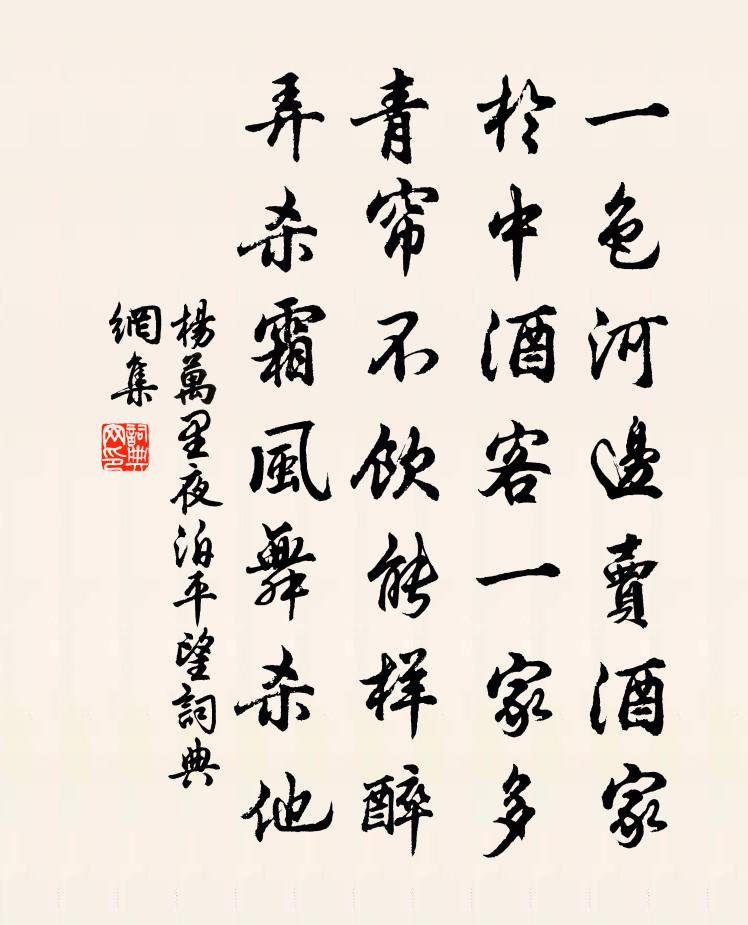 一色河邊賣酒家
於中酒客一家多
青帘不飲能样醉
弄杀霜風舞杀他
楊萬里夜泊平望詞典
網集
詞典
网印